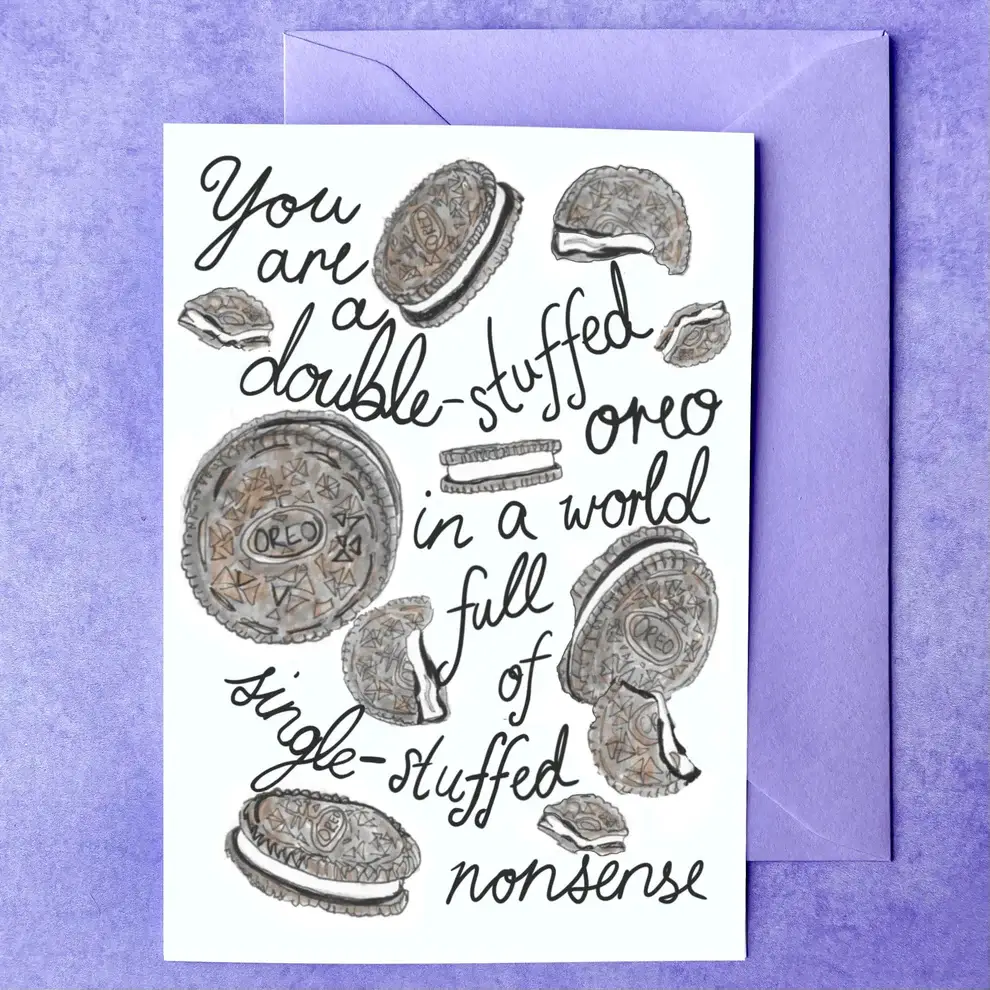 You
are
a
double-stuffed
oreo
in a world
full
of
single-stuffed
nonsense
OREO
OREO
OREO
OREO